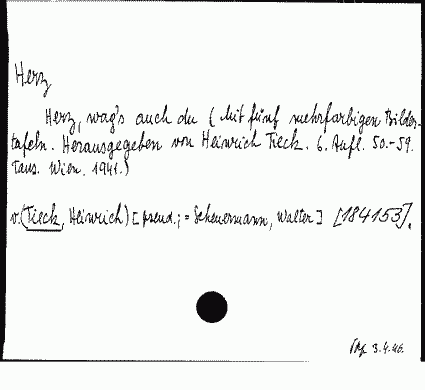 Herz
Herz, wag's auch du (Mit fünf mehrfarbigen Bilder-
tafeln. Herausgegeben von Heinrich Tieck. 6. Aufl. 50.-59.
Taus. Wien. 1941.)
v. (Tieck, Heinrich) [pseud.; = Scheuermann, Walter] [184153].
3.4.46.